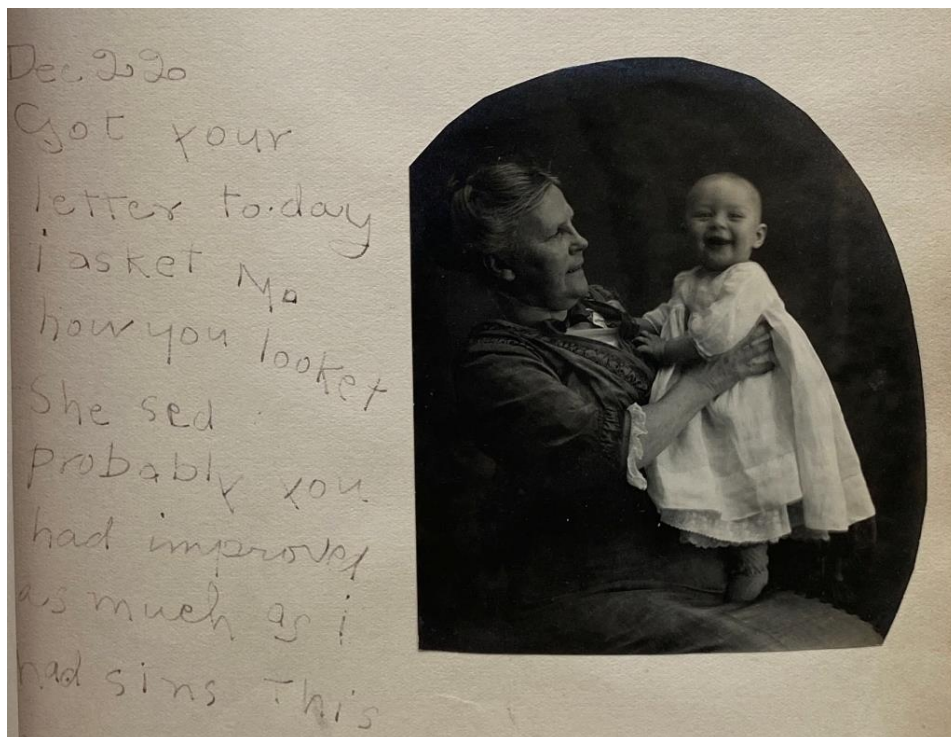 Dec 20 20
Got your
letter to-day
i asket Ma
how you looket
She sed
probably you
had improved
as much as i
had sins This